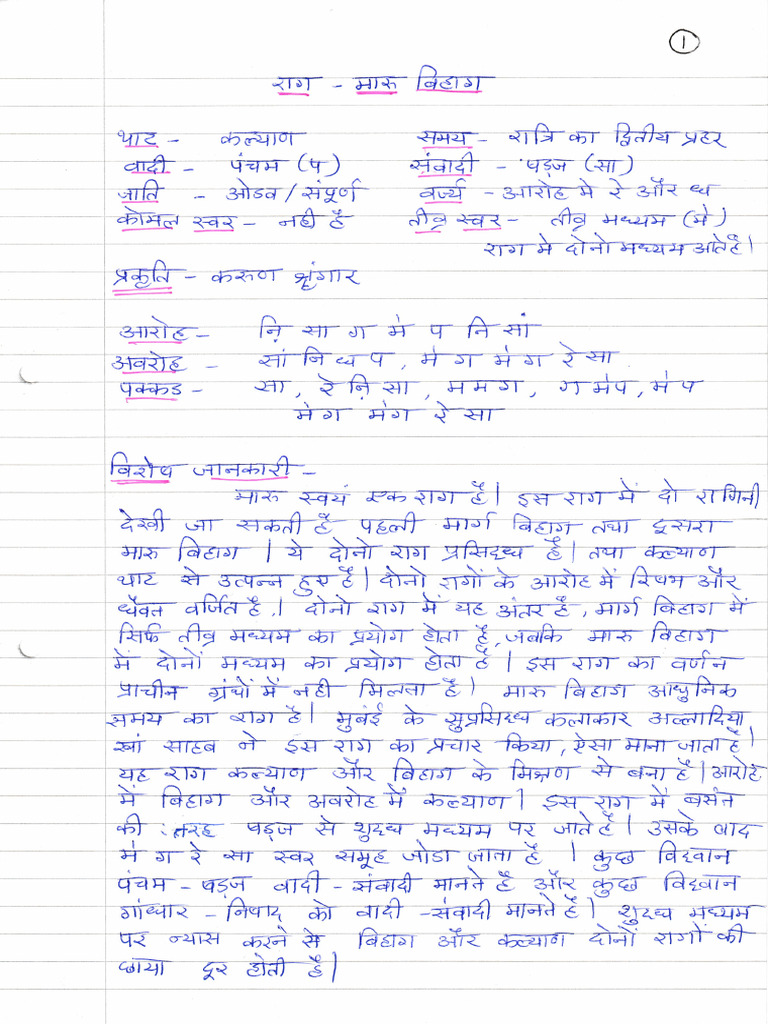 1
राग - मारू बिहाग
थाट - कल्याण समय - रात्रि का द्वितीय प्रहर
वादी - पंचम (प) संवादी - षड्ज (सा)
जाति - ओडव/संपूर्ण वर्ज्य - आरोह मे रे और ध
कोमल स्वर - नही है तीव्र स्वर - तीव्र मध्यम (मे॑)
राग मे दोनो मध्यम आते है।
प्रकृति - करुण श्रृंगार
आरोह - नि़ सा ग म॑ प नि सां
अवरोह - सां नि ध प, म॑ ग म॑ ग रे सा
पक्कड - सा, रे नि़ सा, म म ग, ग म॑ प, म॑ प
म॑ ग म॑ ग रे सा
विशेष जानकारी -
मारू स्वयं एक राग है। इस राग में दो रागिनी
देखी जा सकती है पहली मार्ग बिहाग तथा दूसरा
मारू बिहाग । ये दोनो राग प्रसिद्ध है। तथा कल्याण
थाट से उत्पन्न हुए है। दोनो रागों के आरोह में रिषभ और
धैवत वर्जित है.। दोनो राग में यह अंतर है, मार्ग बिहाग में
सिर्फ तीव्र मध्यम का प्रयोग होता है, जबकि मारू बिहाग
में दोनों मध्यम का प्रयोग होता है। इस राग का वर्णन
प्राचीन ग्रंथों में नही मिलता है। मारू बिहाग आधुनिक
समय का राग है। मुबंई के सुप्रसिध्ध कलाकार अल्लादिया
खां साहब ने इस राग का प्रचार किया, ऐसा माना जाता है।
यह राग कल्याण और बिहाग के मिश्रण से बना है। आरोह
में बिहाग और अवरोह में कल्याण। इस राग में बसंत
की तरह षड्ज से शुध्ध मध्यम पर जाते है। उसके बाद
म॑ ग रे सा स्वर समूह जोडा जाता है । कुछ विद्वान
पंचम - षड्ज वादी - संवादी मानते है और कुछ विद्वान
गांधार - निषाद् को वादी - संवादी मानते है। शुध्ध मध्यम
पर न्यास करने से बिहाग और कल्याण दोनों रागों की
छाया दूर होती है।